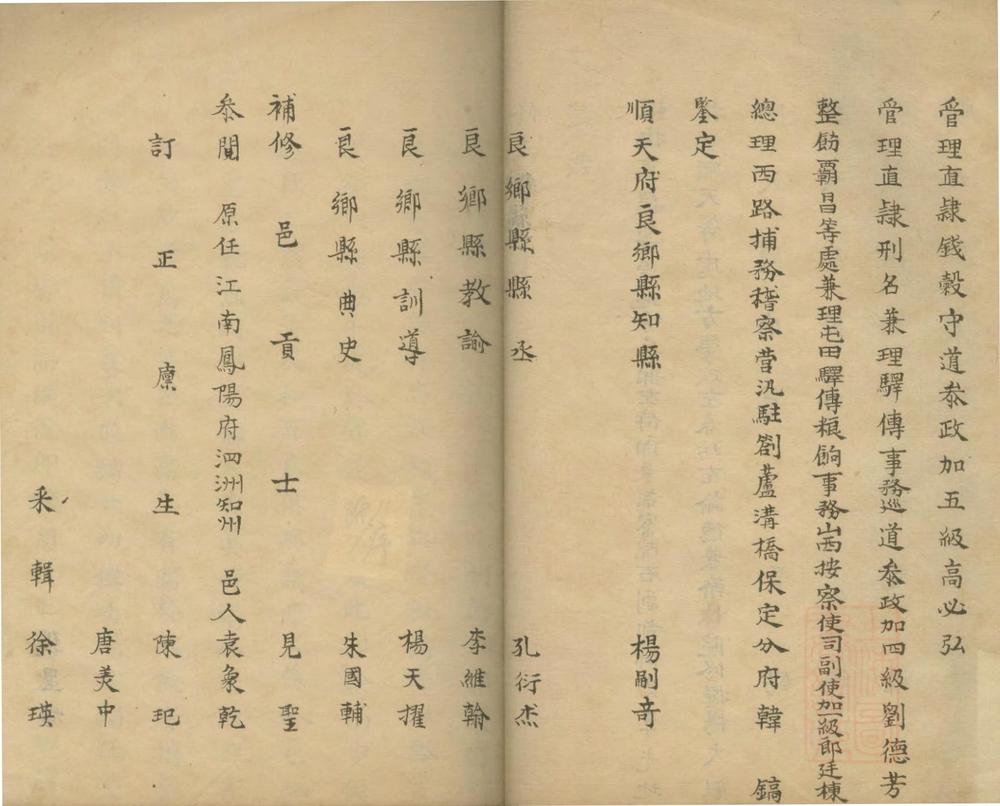 管理直隷錢穀守道叅政加五級高必弘
管理直隷刑名兼理驛傳事務巡道叅政加四級劉德芳
整飭霸昌等處兼理屯田驛傳粮餉事務山西按察使司副使加一級郎廷棟
總理西路捕務稽察營汛駐劄蘆溝橋保定分府韓鎬
鑒定
順天府良鄉縣知縣 楊嗣奇
良鄉縣縣丞 孔衍杰
良鄉縣教諭 李維翰
良鄉縣訓導 楊天擢
良鄉縣典史 朱國輔
補修 邑貢士見聖
叅閱 原任江南鳳陽府泗洲知州 邑人袁象乾
訂正 廪生陳玘
唐美中
采輯徐瑛